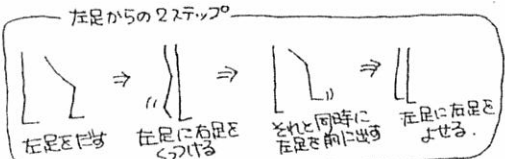 左足からの2ステップ
左足をだす
左足に右足を
くっつける
それと同時に
左足を前に出す
左足に右足を
よせる.